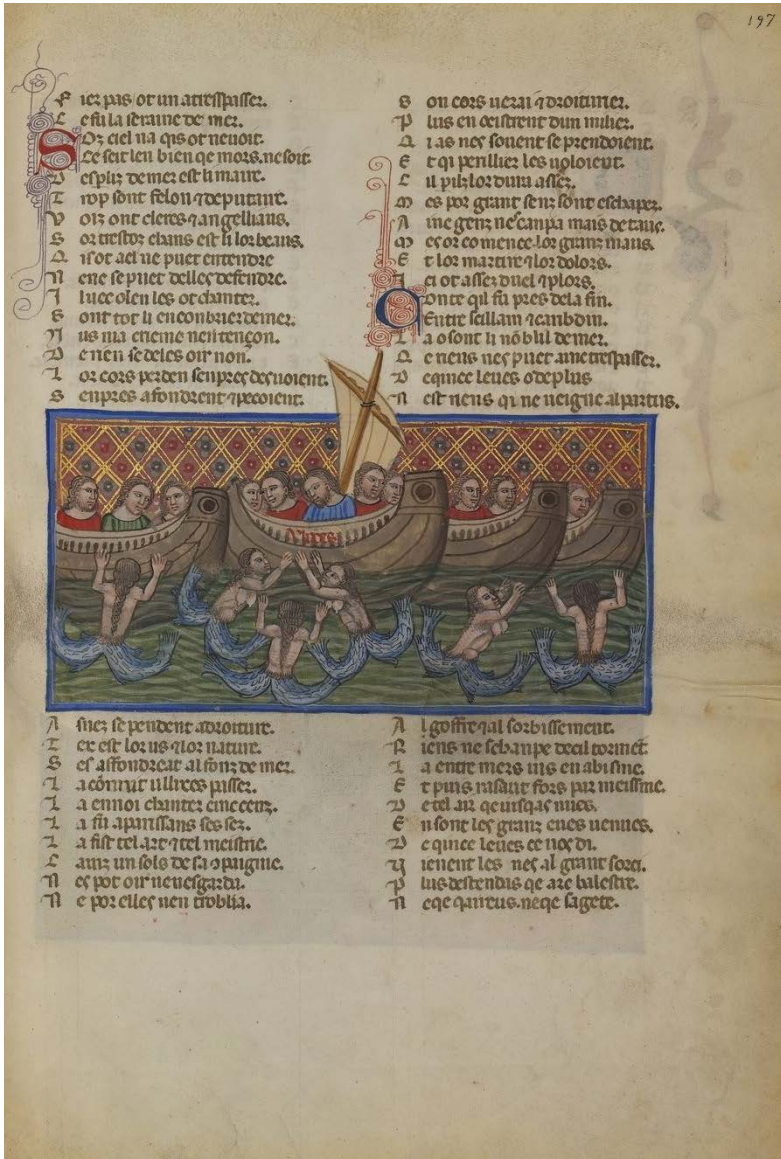 197
F ier pas ot un a trespasser.
C e fu la seraine de mer.
Soz ciel na qis ot ne uoit.
Ce seit len bien qe mors. ne soit.
D espliz de mer est li maire.
T rop sont felon ⁊ de putaire.
V oiz ont cleres ⁊ angelliaus.
S or trestoz chans est li lor beaus.
Q is ot ael ne puet entendre
N ene se puet delles defendre.
I luec o len les ot chanter.
S ont tot li enconbrier de mer.
N us ni a crieme nen tençon.
D e nen se deles oir non.
L or cors perden senpres desuoient.
S enpres afondrent ⁊ peçoient.
S on cors uerai ⁊ droiturier.
P lus en ocistrent dun milier.
Q i as nes souent se prendoient.
E t qi perillier les uoloient.
C il pilz lor dura assez.
M es por grant sens sont eschapez.
A inc genz ne scanpa mais de tauc.
M es or comence lor granz maus.
E t lor martire ⁊ lor dolors.
I ci ot assez duel ⁊ plors.
Conte qil fu pres de la fin.
Entre scillam ⁊ caribdin.
L a o sont li nōblil de mer.
Q e neus nes puet ainc trespasser.
D eqince leues o de plus
N est neus qi ne ueigne al partus.
Vlixes
A sinez se pendent a droiture.
T ex est lor us ⁊ lor nature.
S es affondreat al fonz de mer.
L a cōuint ullixes passer.
L a en noi chanter cinc cenz.
L a fu aparissans ses sez.
L a fist tel art ⁊ tel meistrie.
C ainz un sols de sa ⁊paignie.
N es pot oir ne nesgarda.
N e por elles nen trobla.
A l goffre ⁊ al sorbissement.
R iens ne schanpe de cil tormēt
L a entre mers uis en abisme.
E t puis rasaut fors par meisme.
D e tel air qe iusqas nues.
E n sont les granz eues uenues.
D e qince leues ce nos di.
V ienent les nes al grant sorci.
P lus destendis qe arc balestre.
N eqe qarreus. neqe sagete.